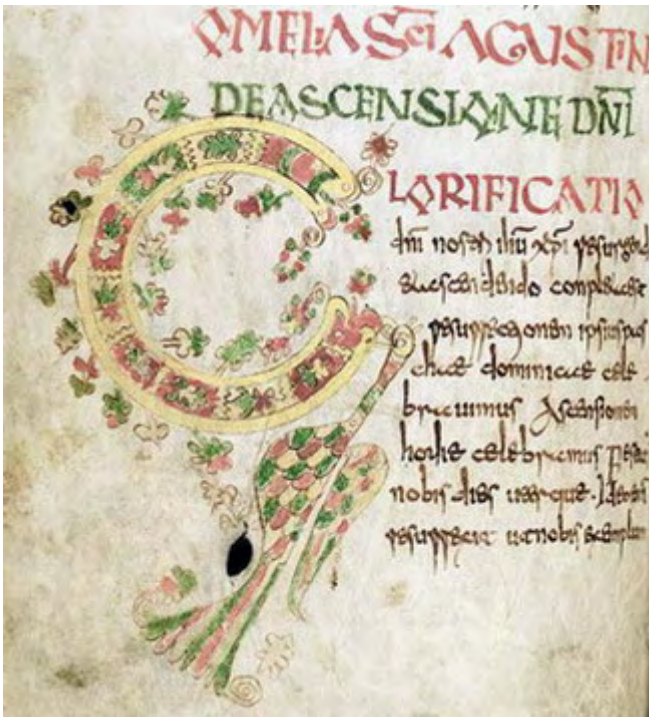 OMELIA SCI AGUSTIN
DE ASCENSIONE DNI
GLORIFICATIO
dni nostri ihu xpi resurgend
ascendendo
resurrectionem ipsius pas
dominicae cele
brauimus Ascensionem
hodie celebramus
nobis dies uterque.
resurrexit ut nobis